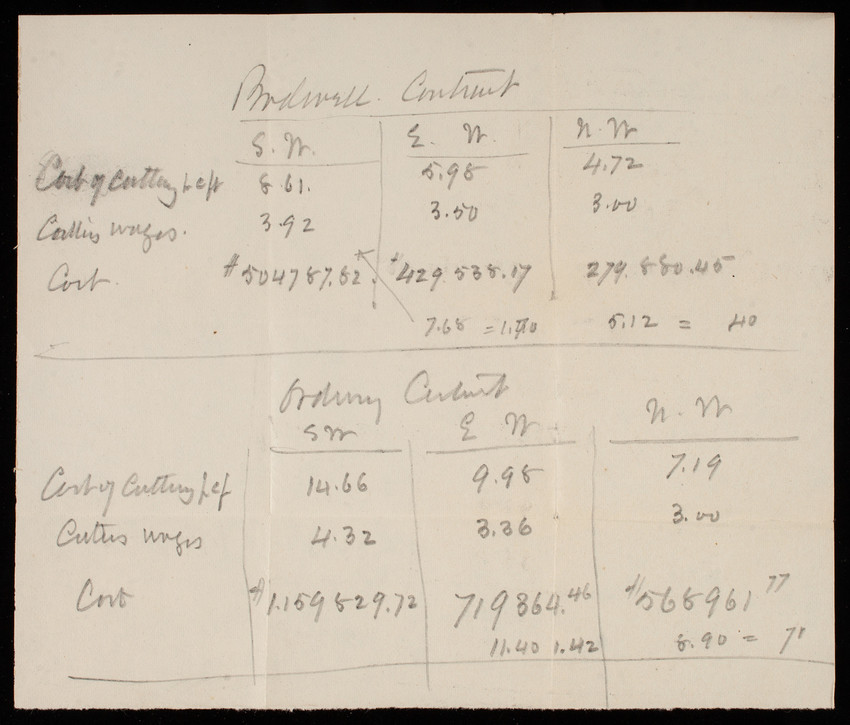 Bodwell Contract
S. W. E. W. N. W
Cost of cutting p cft 8 61. 5.98 4.72
Cutters wages. 3.92 3.50 3.00
Cost. $504787.82. $429 538.17 279.880.45.
7.68 = 5.12 = 40
Ordinary Contract
SW E W N. W
Cost of Cutting p cf 14.66 9.98 7.19
Cutters wages 4.32 3.36 3.00
Cost $1.159829.72 719364.46 $568961 77
11.40 1.42 8.90 =